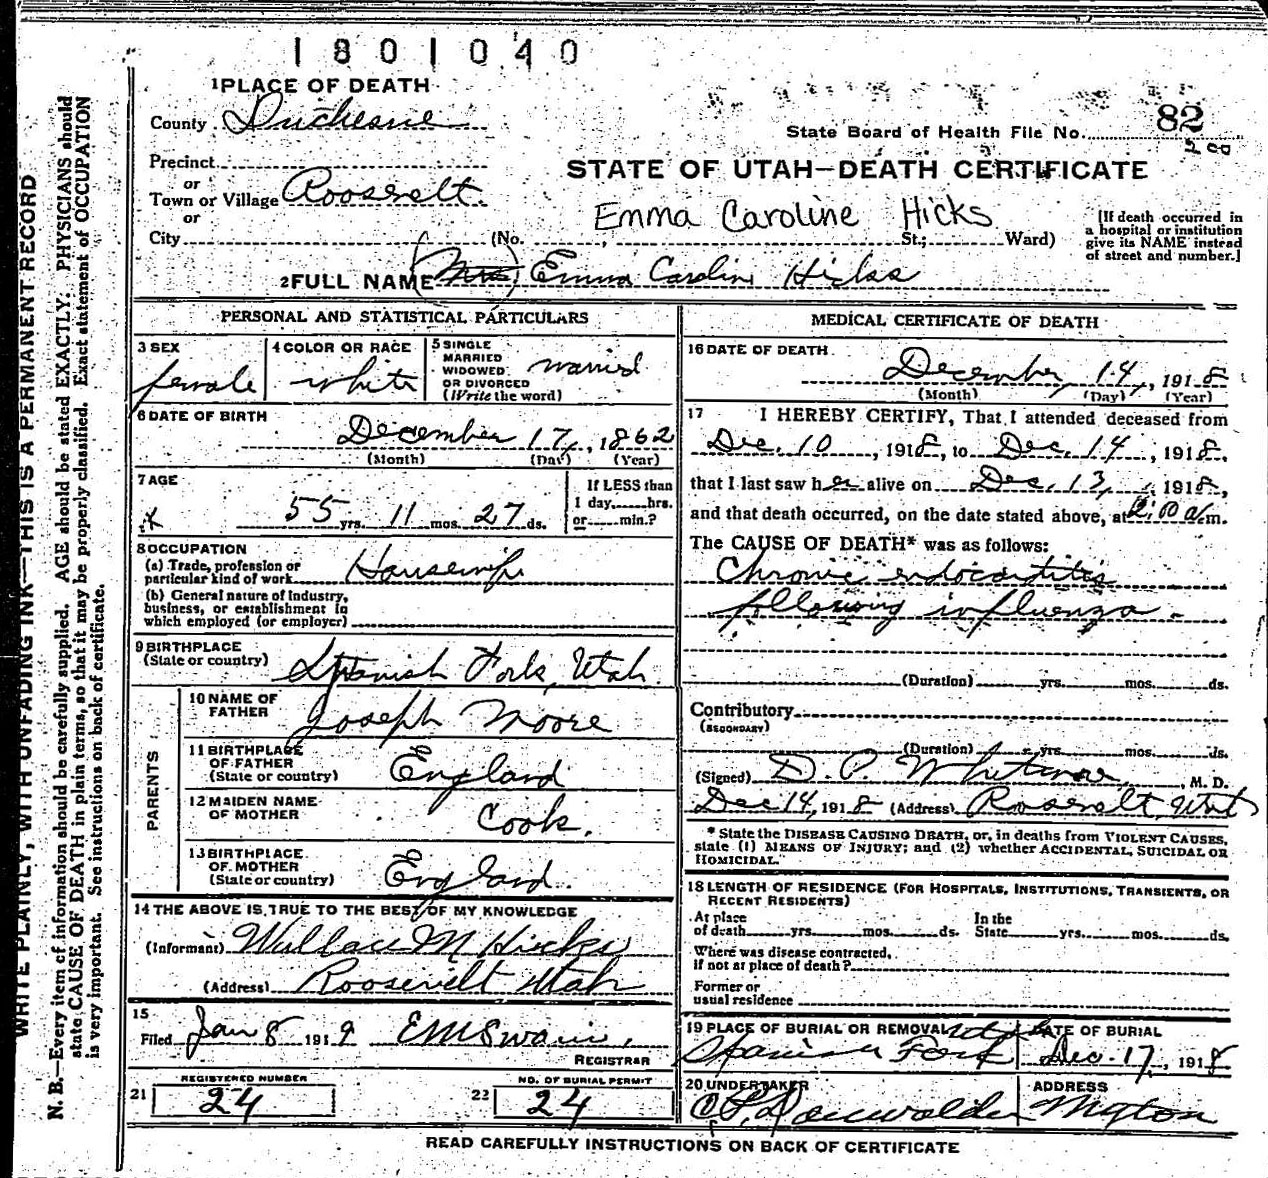 1801040
1 PLACE OF DEATH
County Duchesne
State Board of Health File No. 82
Precinct
STATE OF UTAH—DEATH CERTIFICATE
or
Town or Village Roosevelt
or
Emma Caroline Hicks
City (No. St.; Ward)
[If death occurred in
a hospital or institution
give its NAME instead
of street and number.]
2 FULL NAME (Mrs) Emma Caroline Hicks
PERSONAL AND STATISTICAL PARTICULARS
3 SEX
female
4 COLOR OR RACE
white
5 SINGLE
MARRIED
WIDOWED
OR DIVORCED
(Write the word)
married
6 DATE OF BIRTH
December 17, 1862
(Month) (Day) (Year)
7 AGE
55 yrs. 11 mos. 27 ds.
If LESS than
1 day, hrs.
or min.?
8 OCCUPATION
(a) Trade, profession or
particular kind of work Housewife
(b) General nature of Industry,
business, or establishment in
which employed (or employer)
9 BIRTHPLACE
(State or country) Spanish Fork, Utah
PARENTS
10 NAME OF
FATHER Joseph Moore
11 BIRTHPLACE
OF FATHER
(State or country) England
12 MAIDEN NAME
OF MOTHER Cook.
13 BIRTHPLACE
OF MOTHER
(State or country) England.
14 THE ABOVE IS TRUE TO THE BEST OF MY KNOWLEDGE
(Informant) Wallace M Hicks
(Address) Roosevelt Utah
15
Filed Jan 8 1919 E M Swain,
REGISTRAR
21 REGISTERED NUMBER
24
22 NO. OF BURIAL PERMIT
24
MEDICAL CERTIFICATE OF DEATH
16 DATE OF DEATH
December 14, 1918
(Month) (Day) (Year)
17 I HEREBY CERTIFY, That I attended deceased from
Dec. 10, 1918, to Dec. 14, 1918,
that I last saw her alive on Dec. 13, 1918,
and that death occurred, on the date stated above, at 2:00 a.m.
The CAUSE OF DEATH* was as follows:
Chronic endocarditis
following influenza -
(Duration) yrs. mos. ds.
Contributory
(SECONDARY)
(Duration) yrs. mos. ds.
(Signed) D. P. Whitmore, M. D.
Dec 14, 1918 (Address) Roosevelt, Utah
* State the DISEASE CAUSING DEATH, or, in deaths from VIOLENT CAUSES,
state (1) MEANS OF INJURY; and (2) whether ACCIDENTAL, SUICIDAL OR
HOMICIDAL.
18 LENGTH OF RESIDENCE (FOR HOSPITALS, INSTITUTIONS, TRANSIENTS, OR
RECENT RESIDENTS)
At place
of death yrs. mos. ds.
In the
State yrs. mos. ds.
Where was disease contracted,
if not at place of death?
Former or
usual residence
19 PLACE OF BURIAL OR REMOVAL
Spanish Fork Utah
DATE OF BURIAL
Dec. 17, 1918
20 UNDERTAKER
ADDRESS
Myton
READ CAREFULLY INSTRUCTIONS ON BACK OF CERTIFICATE
WRITE PLAINLY, WITH UNFADING INK—THIS IS A PERMANENT RECORD
N. B.—Every item of information should be carefully supplied. AGE should be stated EXACTLY. PHYSICIANS should
state CAUSE OF DEATH in plain terms, so that it may be properly classified. Exact statement of OCCUPATION
is very important. See instructions on back of certificate.